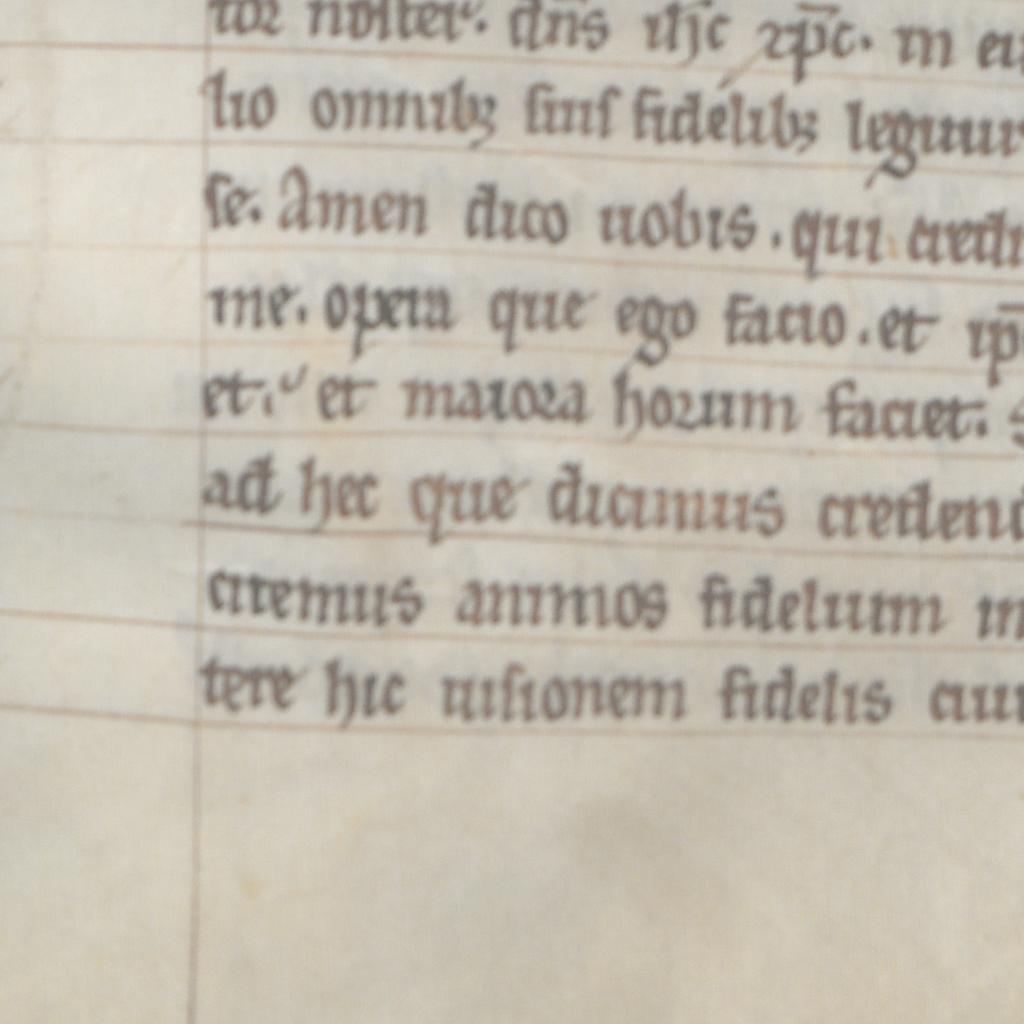 tor noster. dn̄s ih̄c xp̄c. in eu
lio omnibꝫ suis fidelibꝫ legitur
se. Amen dico uobis. qui credi
me. opera que ego facio. et ip̄
et. et maiora horum faciet. s
ad hec que dicimus credend
citemus animos fidelium in
tere hic uisionem fidelis cui